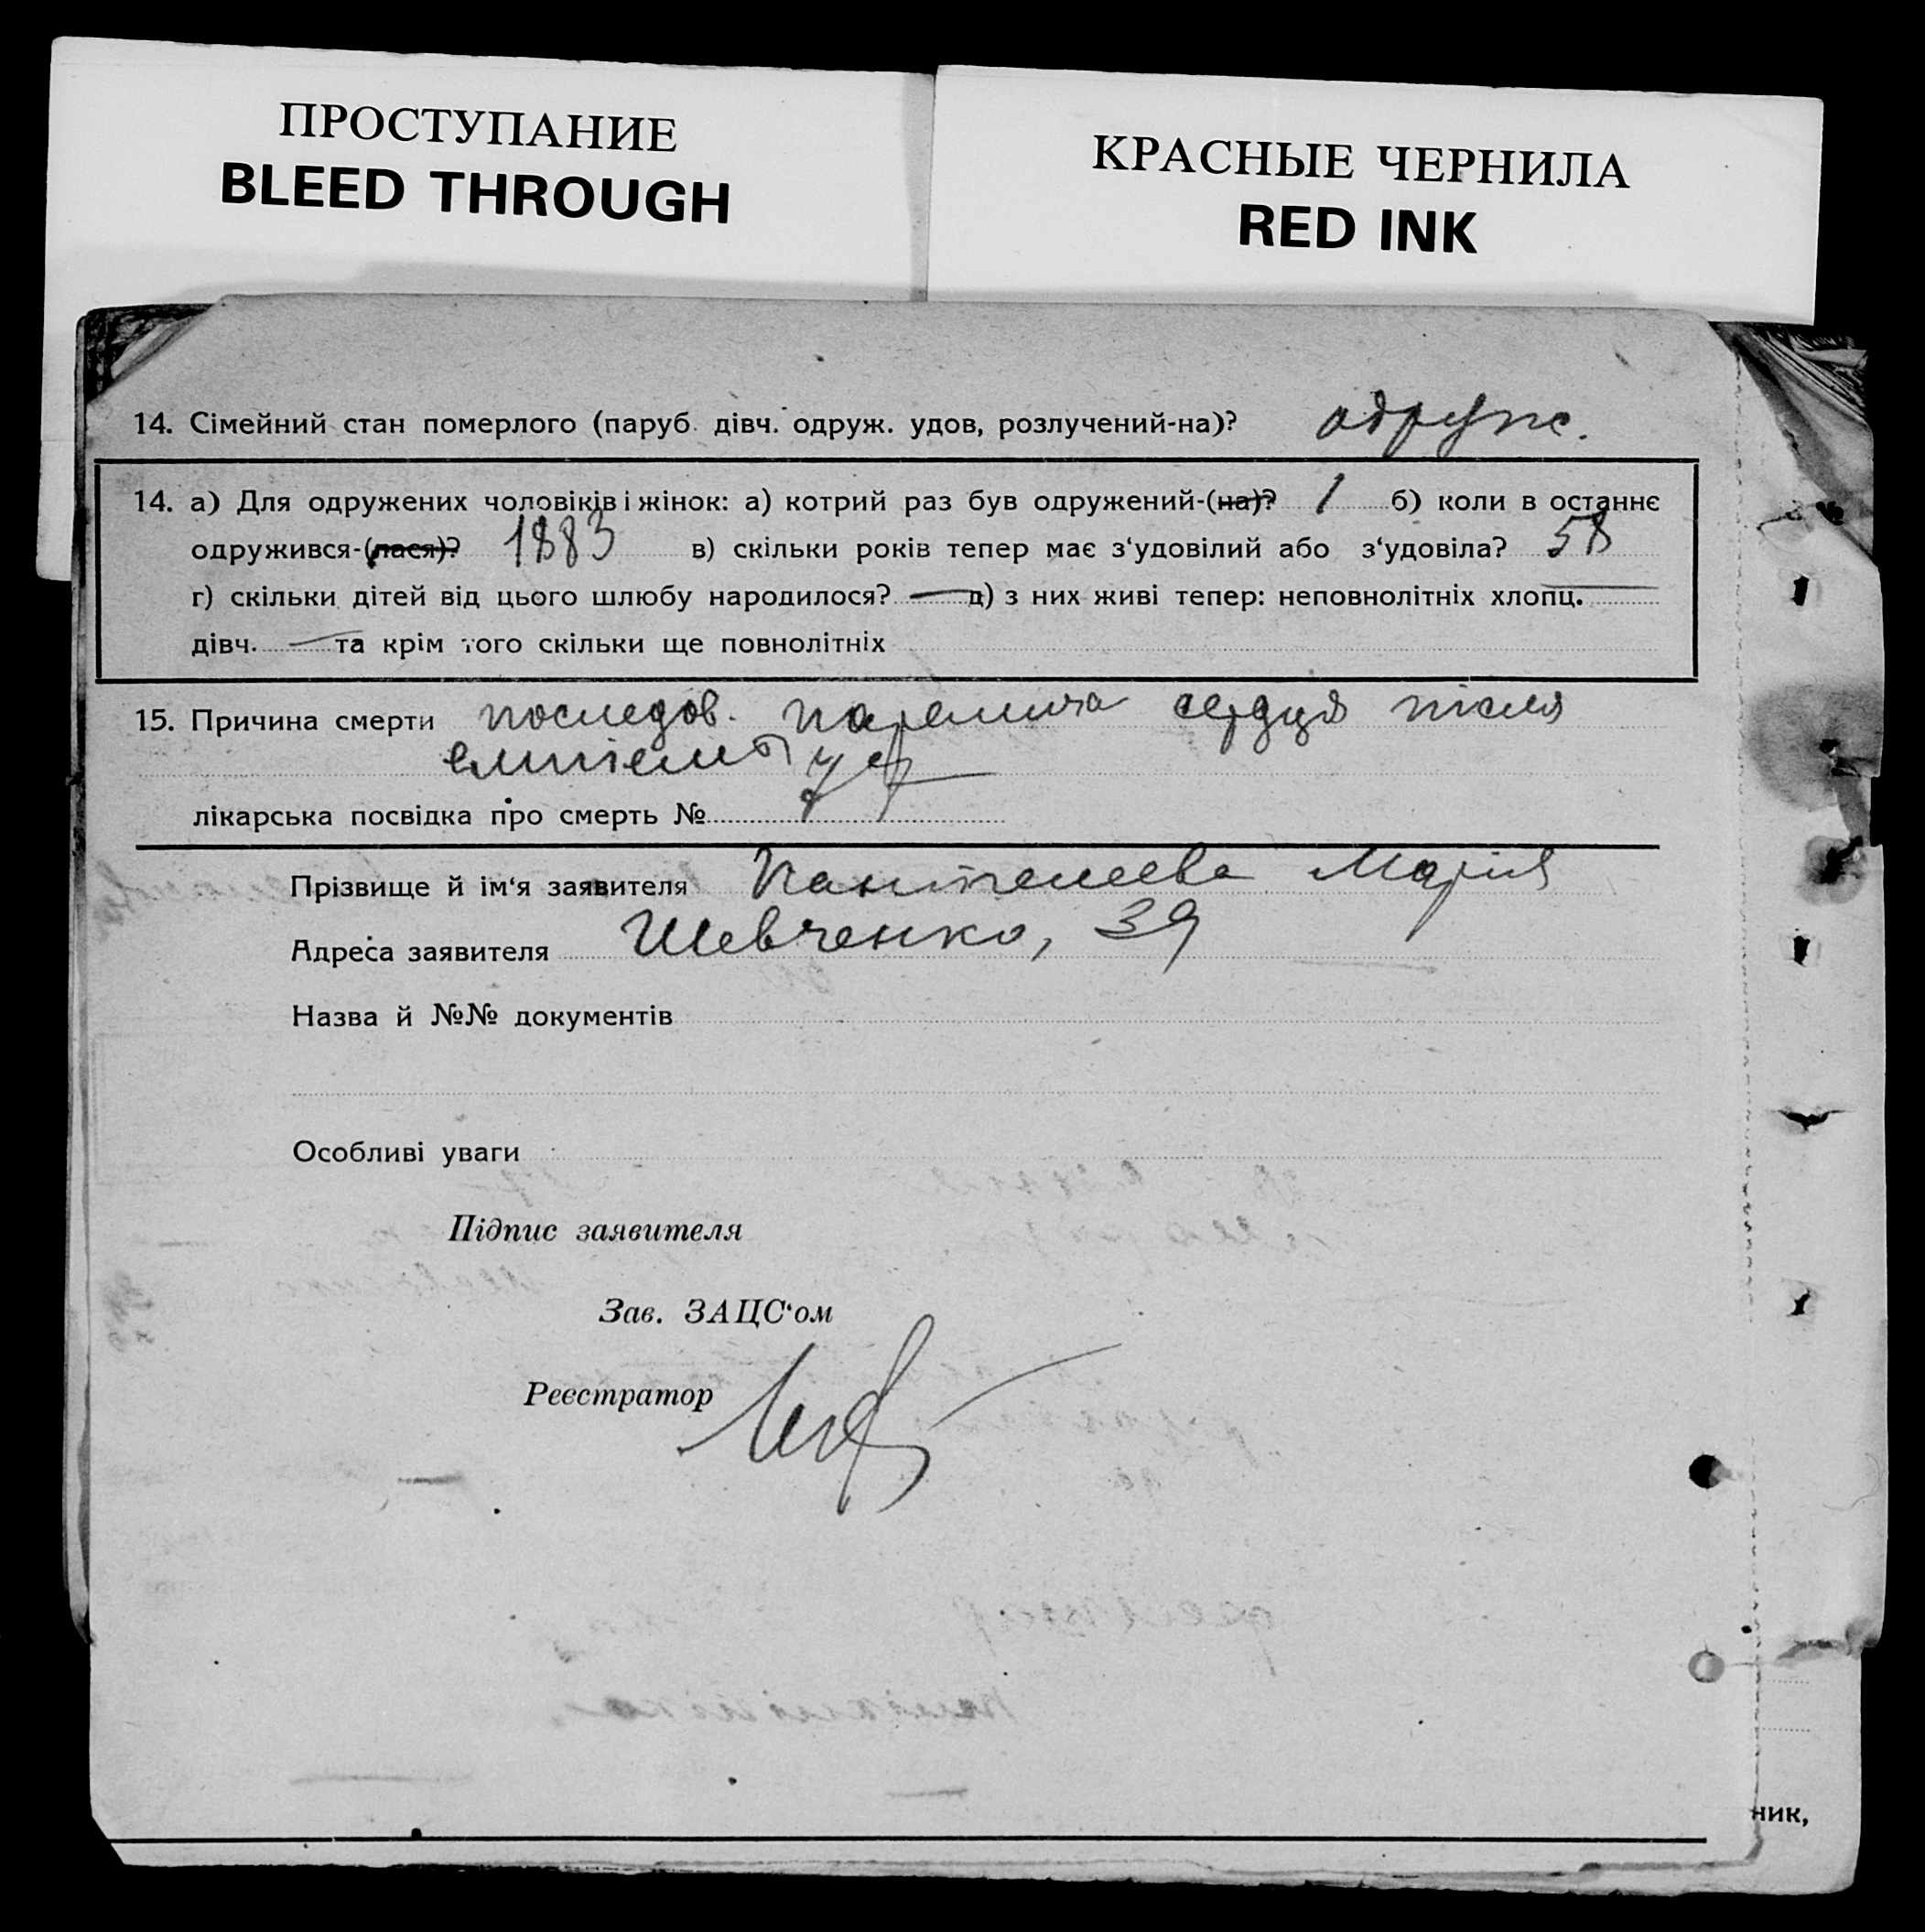 ПРОСТУПАНИЕ
BLEED THROUGH
КРАСНЫЕ ЧЕРНИЛА
RED INK
14. Сімейний стан померлого (паруб. дівч. одруж. удов, розлучений-на)? одруж.
14. а) Для одружених чоловіків і жінок: а) котрий раз був одружений-(на)? 1 б) коли в останнє
одружився-(лася)? 1883 в) скільки років тепер має з‘удовілий або з‘удовіла? 58
г) скільки дітей від цього шлюбу народилося? — д) з них живі тепер: неповнолітніх хлопц. —
дівч. — та крім того скільки ще повнолітніх
15. Причина смерти последов. параліча сердця після
лікарська посвідка про смерть №
Прізвище й ім‘я заявителя Пантелеева Марія
Адреса заявителя Шевченко, 39
Назва й №№ документів
Особливі уваги
Підпис заявителя
Зав. ЗАЦС‘ом
Реєстратор
ник,